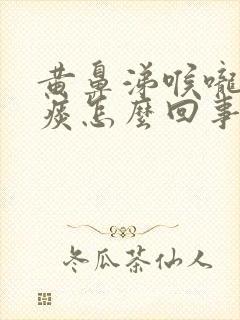 黄鼻涕喉嚨
痰怎麼回事
冬瓜茶仙人